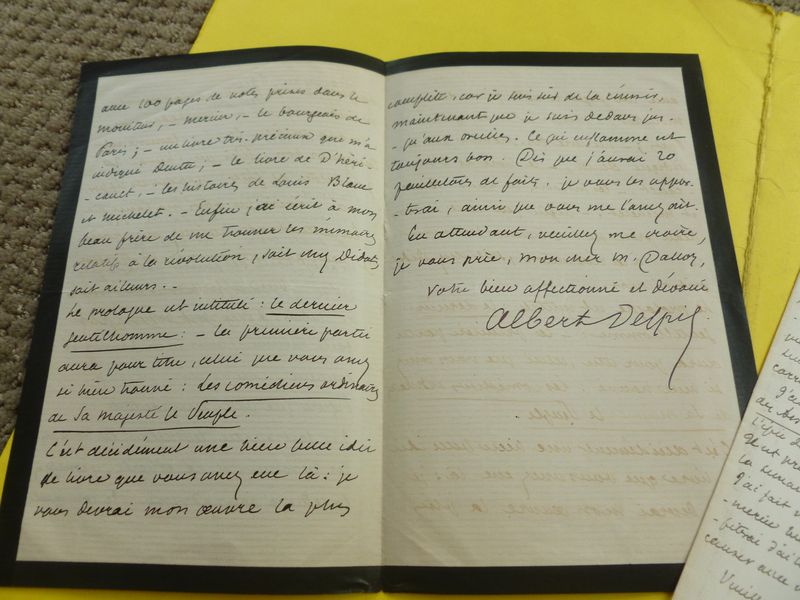 avec 100 pages de notes prises dans le
moniteur, – mercier, – le bourgeois de
Paris; – un livre très-précieux que m'a
indiqué Dentu; – le livre de D'héri-
-cault, – les histoires de Louis Blanc
et michelet. – Enfin j'ai écrit à mon
beau frère de me trouver les mémoires
relatifs à la révolution, soit chez Didot,
soit ailleurs. –
Le prologue est intitulé: le dernier
gentilhomme: – la première partie
aura pour titre, celui que vous avez
si bien trouvé: Les comédiens ordinaires
de Sa majesté le Peuple.
C'est décidément une bien belle idée
de livre que vous avez eue là: je
vous devrai mon œuvre la plus
complète, car je suis sûr de la réussir,
maintenant que je suis dedans jus-
-qu'aux oreilles. Ce qui enflamme est
toujours bon. Dès que j'aurai 20
feuilletons de faits, je vous les appor-
-terai, ainsi que vous me l'avez dit.
En attendant, veuillez me croire,
je vous prie, mon cher m. Dalloz,
votre bien affectionné et dévoué
Albert Delpit
causer avec